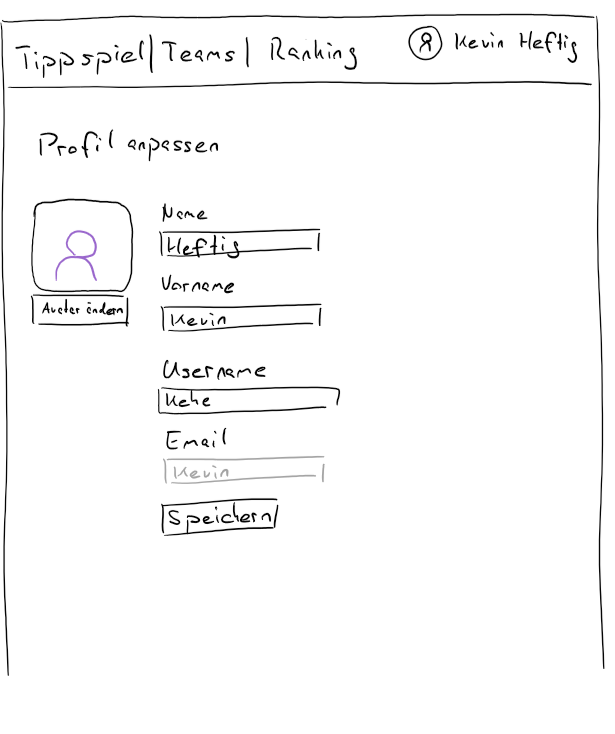 Tippspiel | Teams | Ranking Kevin Heftig
Profil anpassen
Name
Heftig
Avatar ändern
Vorname
Kevin
Username
Kehe
Email
Kevin
Speichern